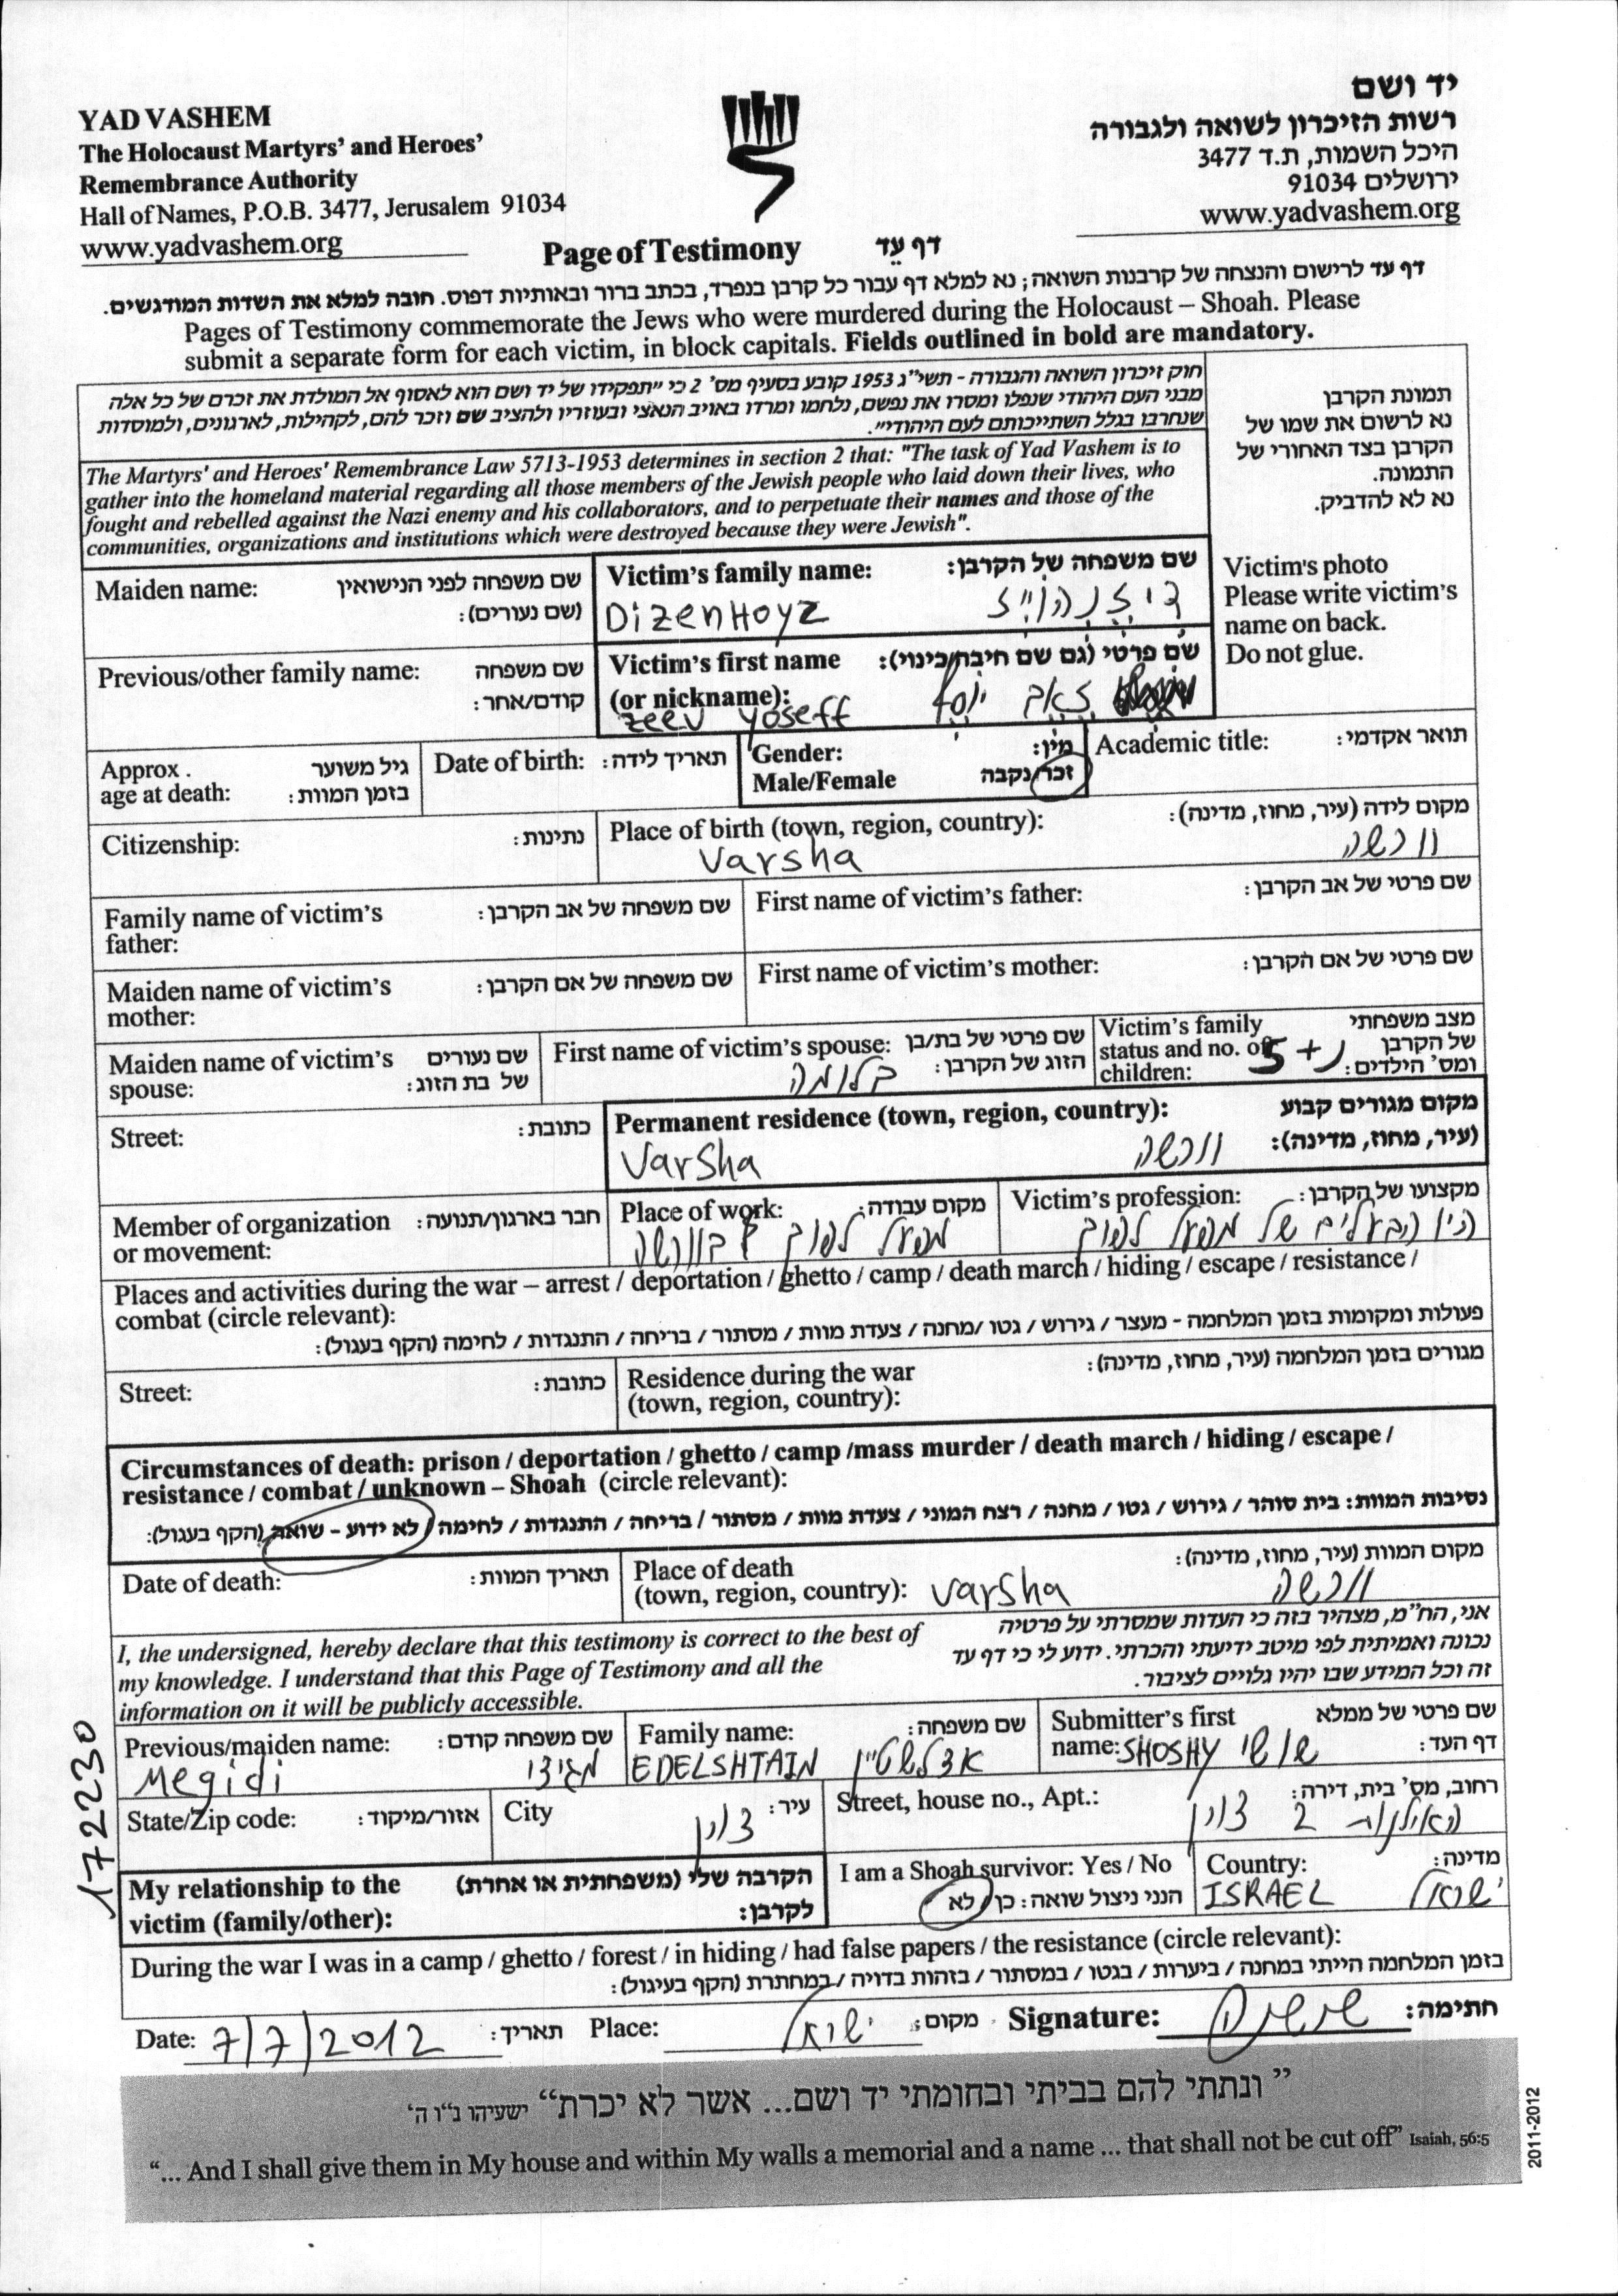 YAD VASHEM
The Holocaust Martyrs' and Heroes'
Remembrance Authority
Hall of Names, P.O.B. 3477, Jerusalem 91034
www.yadvashem.org
יד ושם
רשות הזיכרון לשואה ולגבורה
היכל השמות, ת.ד 3477
ירושלים 91034
www.yadvashem.org
Page of Testimony דף עֵד
דף עד לרישום והנצחה של קרבנות השואה; נא למלא דף עבור כל קרבן בנפרד, בכתב ברור ובאותיות דפוס. חובה למלא את השדות המודגשים.
Pages of Testimony commemorate the Jews who were murdered during the Holocaust – Shoah. Please
submit a separate form for each victim, in block capitals. Fields outlined in bold are mandatory.
חוק זיכרון השואה והגבורה - תשי"ג 1953 קובע בסעיף מס' 2 כי "תפקידו של יד ושם הוא לאסוף אל המולדת את זכרם של כל אלה
מבני העם היהודי שנפלו ומסרו את נפשם, נלחמו ומרדו באויב הנאצי ובעוזריו ולהציב שם וזכר להם, לקהילות, לארגונים, ולמוסדות
שנחרבו בגלל השתייכותם לעם היהודי".
The Martyrs' and Heroes' Remembrance Law 5713-1953 determines in section 2 that: "The task of Yad Vashem is to
gather into the homeland material regarding all those members of the Jewish people who laid down their lives, who
fought and rebelled against the Nazi enemy and his collaborators, and to perpetuate their names and those of the
communities, organizations and institutions which were destroyed because they were Jewish".
תמונת הקרבן
נא לרשום את שמו של
הקרבן בצד האחורי של
התמונה.
נא לא להדביק.
Victim's photo
Please write victim's
name on back.
Do not glue.
Maiden name: שם משפחה לפני הנישואין
(שם נעורים):
Victim's family name: שם משפחה של הקרבן:
Dizenhoyz דיזנהויז
Previous/other family name: שם משפחה
קודם/אחר:
Victim's first name שם פרטי (גם שם חיבה/כינוי):
(or nickname):
zeev yoseff זאב יוסף
Approx. גיל משוער
age at death: בזמן המוות:
Date of birth: תאריך לידה:
Gender: מין:
Male/Female זכר/נקבה
Academic title: תואר אקדמי:
Citizenship: נתינות:
Place of birth (town, region, country): מקום לידה (עיר, מחוז, מדינה):
Varsha וורשה
Family name of victim's שם משפחה של אב הקרבן:
father:
First name of victim's father: שם פרטי של אב הקרבן:
Maiden name of victim's שם משפחה של אם הקרבן:
mother:
First name of victim's mother: שם פרטי של אם הקרבן:
Maiden name of victim's שם נעורים
spouse: של בת הזוג:
First name of victim's spouse: שם פרטי של בת/בן
הזוג של הקרבן:
בלומה
Victim's family מצב משפחתי
status and no. of של הקרבן
children: ומס' הילדים:
5+1
Street: כתובת:
Permanent residence (town, region, country): מקום מגורים קבוע
(עיר, מחוז, מדינה):
Varsha וורשה
Member of organization חבר בארגון/תנועה:
or movement:
Place of work: מקום עבודה:
מפעל בוורשה
Victim's profession: מקצועו של הקרבן:
היו הבעלים של מפעל
Places and activities during the war – arrest / deportation / ghetto / camp / death march / hiding / escape / resistance /
combat (circle relevant):
פעולות ומקומות בזמן המלחמה - מעצר / גירוש / גטו /מחנה / צעדת מוות / מסתור / בריחה / התנגדות / לחימה (הקף בעגול):
Street: כתובת:
Residence during the war מגורים בזמן המלחמה (עיר, מחוז, מדינה):
(town, region, country):
Circumstances of death: prison / deportation / ghetto / camp /mass murder / death march / hiding / escape /
resistance / combat / unknown – Shoah (circle relevant):
נסיבות המוות: בית סוהר / גירוש / גטו / מחנה / רצח המוני / צעדת מוות / מסתור / בריחה / התנגדות / לחימה / לא ידוע - שואה (הקף בעגול):
Date of death: תאריך המוות:
Place of death מקום המוות (עיר, מחוז, מדינה):
(town, region, country): varsha וורשה
I, the undersigned, hereby declare that this testimony is correct to the best of
my knowledge. I understand that this Page of Testimony and all the
information on it will be publicly accessible.
אני, הח"מ, מצהיר בזה כי העדות שמסרתי על פרטיה
נכונה ואמיתית לפי מיטב ידיעתי והכרתי. ידוע לי כי דף עד
זה וכל המידע שבו יהיו גלויים לציבור.
Previous/maiden name: שם משפחה קודם:
Megidi מגידי
Family name: שם משפחה:
EDELSHTAIN אדלשטיין
Submitter's first שם פרטי של ממלא
name: SHOSHY שושי דף העד:
State/Zip code: אזור/מיקוד:
City עיר:
Street, house no., Apt.: רחוב, מס' בית, דירה:
האילנות 2
My relationship to the הקרבה שלי (משפחתית או אחרת)
victim (family/other): לקרבן:
I am a Shoah survivor: Yes / No
הנני ניצול שואה: כן / לא
Country: מדינה:
ISRAEL ישראל
During the war I was in a camp / ghetto / forest / in hiding / had false papers / the resistance (circle relevant):
בזמן המלחמה הייתי במחנה / ביערות / בגטו / במסתור / בזהות בדויה / במחתרת (הקף בעיגול):
Date: 7/7/2012 תאריך: Place: ישראל מקום: Signature: חתימה:
"ונתתי להם בביתי ובחומתי יד ושם... אשר לא יכרת" ישעיהו נ"ו ה'
"... And I shall give them in My house and within My walls a memorial and a name ... that shall not be cut off" Isaiah, 56:5
172230
2011-2012